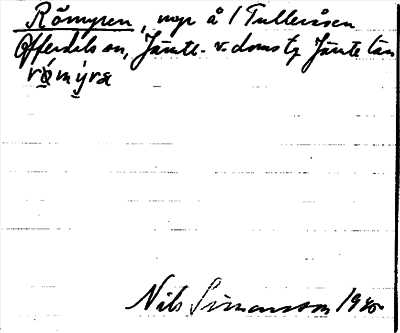 Römyren, myr å Tulleråsen
Offerdals sn, Jämtl. v. doms tg Jämte län
rö́mýra
Nils Simonsson 1945